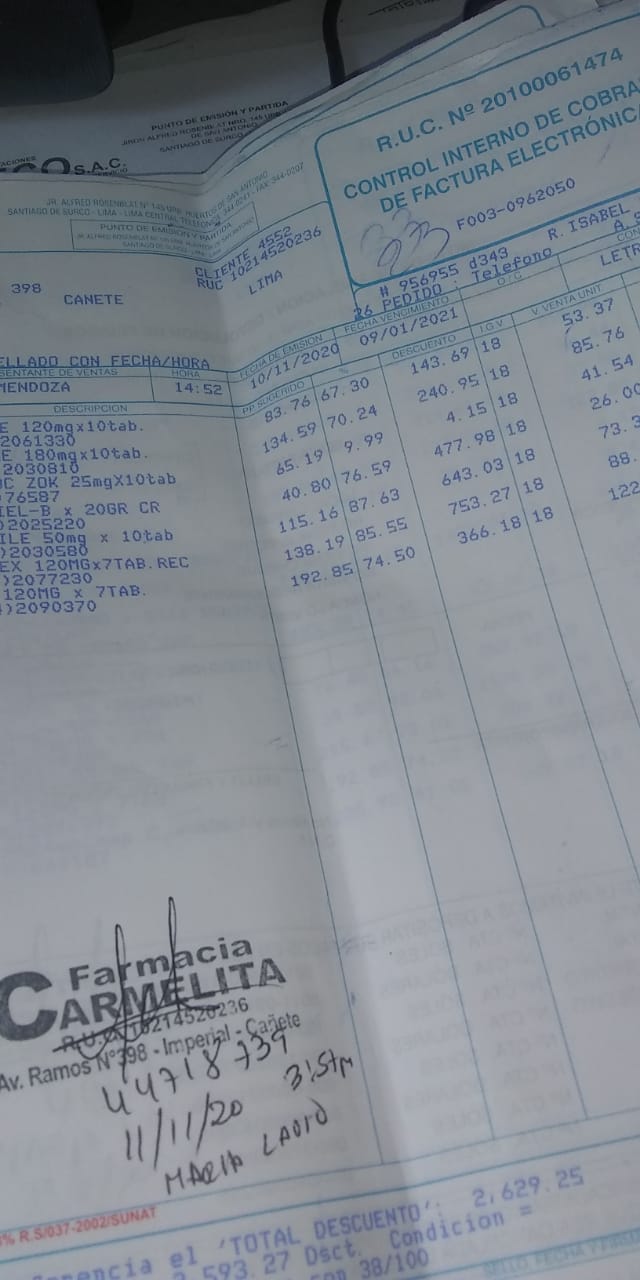 PUNTO DE EMISIÓN Y PARTIDA
JIRON ALFRED ROSENBLAT NRO. 145 URB.
DE SAN ANTONIO
SANTIAGO DE SURCO - LIMA
S.A.C.
JR. ALFRED ROSENBLAT Nº 145 URB. HUERTOS DE SAN ANTONIO
SANTIAGO DE SURCO - LIMA - LIMA CENTRAL TELEFÓNICA 344-0241 - FAX: 344-0207
PUNTO DE EMISIÓN Y PARTIDA
R.U.C. Nº 20100061474
CONTROL INTERNO DE COBRA
DE FACTURA ELECTRÓNICA
F003-0962050
CLIENTE 4552
RUC 10214520236
LIMA
398
CANETE
# 956955 d343 R. ISABEL
26 PEDIDO : Telefono
O / C
LETR
ELLADO CON FECHA/HORA
SENTANTE DE VENTAS HORA FECHA DE EMISION FECHA VENCIMIENTO
MENDOZA 14:52 10/11/2020 09/01/2021
DESCRIPCION PP SUGERIDO % DESCUENTO I G V V. VENTA UNIT
E 120mgx10tab. 83.76 67.30 143.69 18 53.37
2061330
E 180mgx10tab. 134.59 70.24 240.95 18 85.76
2030810
C ZOK 25mgX10tab 65.19 9.99 4.15 18 41.54
76587
IEL-B x 20GR CR 40.80 76.59 477.98 18 26.00
)2025220
ILE 50mg x 10tab 115.16 87.63 643.03 18 73.3
)2030580
EX 120MGx7TAB.REC 138.19 85.55 753.27 18 88.
)2077230
120MG x 7TAB. 192.85 74.50 366.18 18 122
)2090370
Farmacia
CARMELITA
R.U.C. 10214520236
Av. Ramos N°398 - Imperial - Cañete
44718739
11/11/20
MARIA
% R.S/037-2002/SUNAT
el 'TOTAL DESCUENTO': 2,629.25
593.27 Dsct. Condicion =
38/100